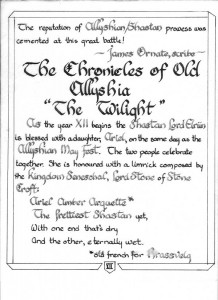 The reputation of Allyshian/Shastan prowess was
cemented at this great battle!
~ James Ornate, scribe ~
The Chronicles of Old
Allyshia
"The Twilight"
As the year XII begins the Shastan Lord Elrün
is blessed with a daughter, Ariel, on the same day as the
Allyshian May fest. The two people celebrate
together. She is honoured with a limrick composed by
the Kingdom Seneschal, Lord Stone of Stone
Croft:
Ariel Amber Arquette*
The Prettiest Shastan yet,
With one end that's dry
And the other, eternally wet.
*old french for
XII